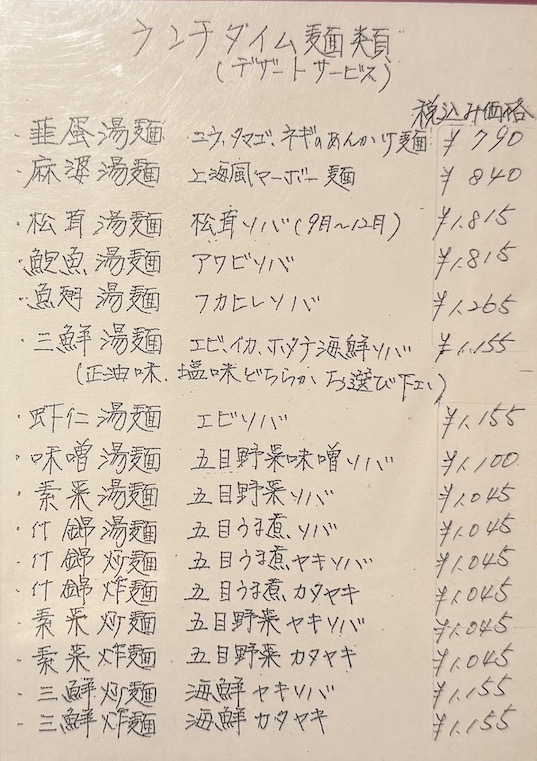 ランチタイム麺類
(デザートサービス)
税込み価格
・韮蛋湯麺 ニラ、タマゴ、ネギのあんかけ麺 ¥790
・麻婆湯麺 上海風マーボー麺 ¥840
・松茸湯麺 松茸ソバ(9月〜12月) ¥1.815
・鮑魚湯麺 アワビソバ ¥1.815
・魚翅湯麺 フカヒレソバ ¥1.265
・三鮮湯麺 エビ、イカ、ホタテ海鮮ソバ ¥1.155
(正油味、塩味どちらかお選び下さい)
・虾仁湯麺 エビソバ ¥1.155
・味噌湯麺 五目野菜味噌ソバ ¥1.100
・素菜湯麺 五目野菜ソバ ¥1.045
・什錦湯麺 五目うま煮ソバ ¥1.045
・什錦炒麺 五目うま煮ヤキソバ ¥1.045
・什錦炸麺 五目うま煮カタヤキ ¥1.045
・素菜炒麺 五目野菜ヤキソバ ¥1.045
・素菜炸麺 五目野菜カタヤキ ¥1.045
・三鮮炒麺 海鮮ヤキソバ ¥1.155
・三鮮炸麺 海鮮カタヤキ ¥1.155